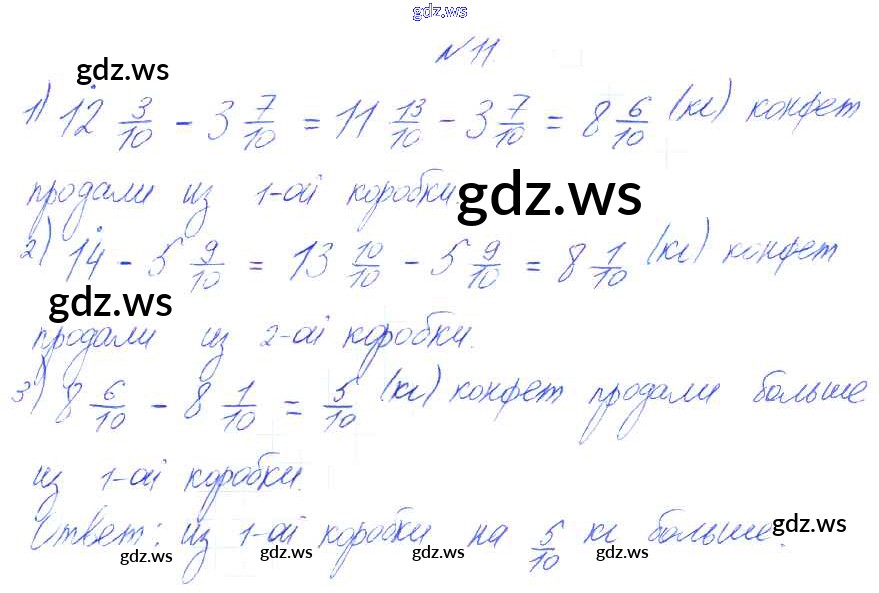 gdz.ws
№11.
gdz.ws
1) 12 3/10 - 3 7/10 = 11 13/10 - 3 7/10 = 8 6/10 (кг) конфет
продали из 1-ой коробки.
gdz.ws
2) 14 - 5 9/10 = 13 10/10 - 5 9/10 = 8 1/10 (кг) конфет
gdz.ws
продали из 2-ой коробки.
3) 8 6/10 - 8 1/10 = 5/10 (кг) конфет продали больше
из 1-ой коробки.
Ответ: из 1-ой коробки на 5/10 кг больше.
gdz.ws
gdz.ws gdz.ws gdz.ws gdz.ws